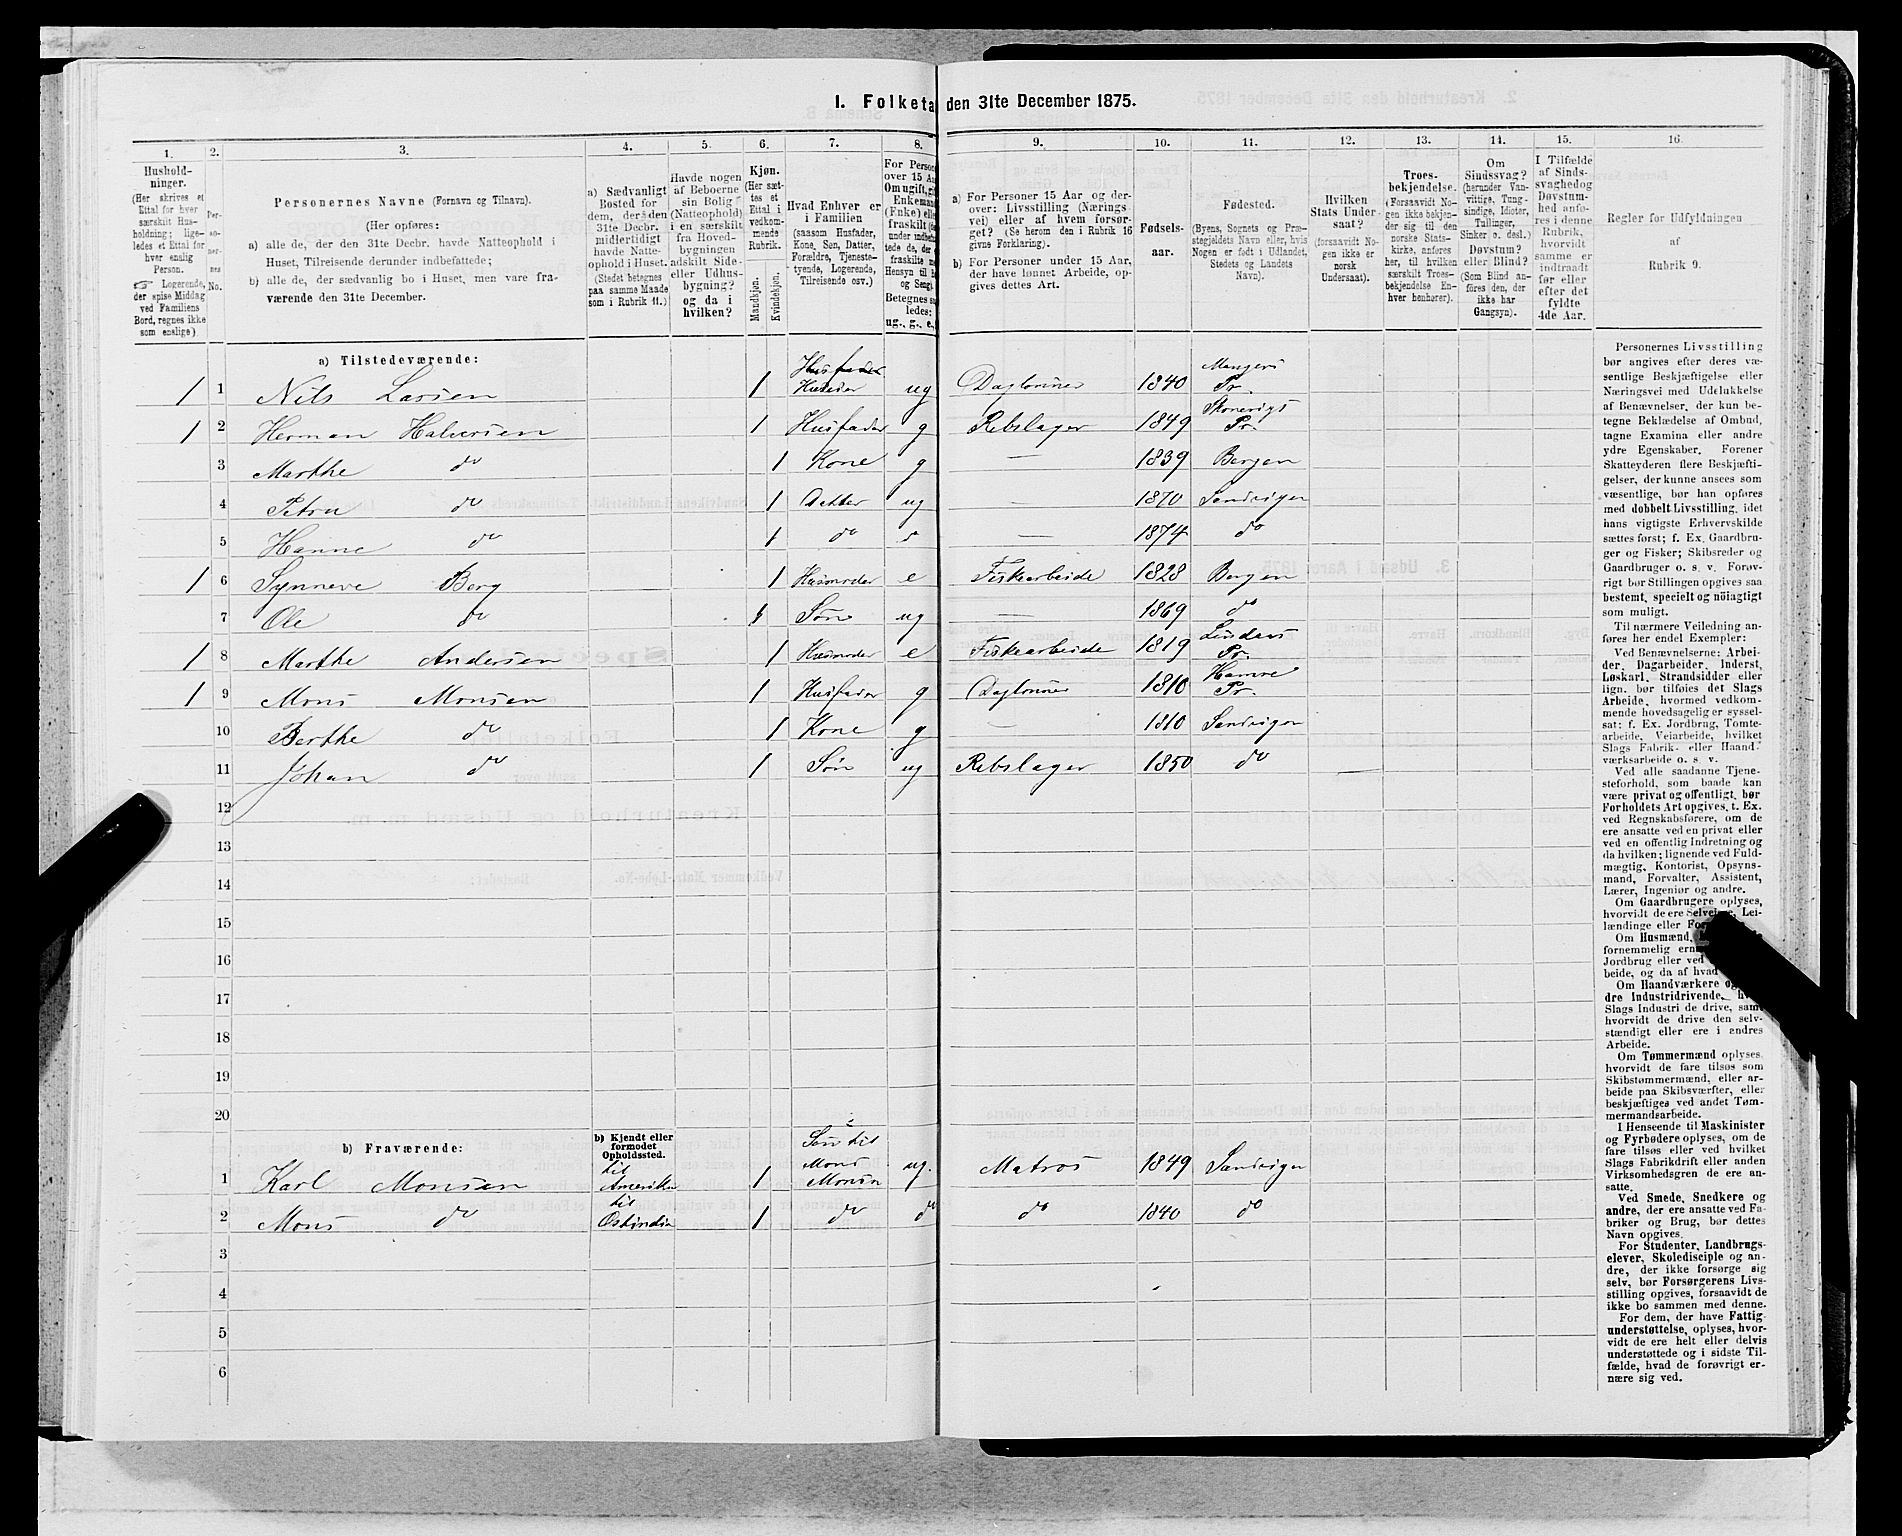 I. Folketa den 31te December 1875.
1. 2. 3. 4. 5. 6. 7. 8. 9. 10. 11. 12. 13. 14. 15. 16.
Hushold-
ninger.
(Her skrives et
Ettal for hver
særskilt Hus-
holdning; lige-
ledes et Ettal for
hver enslig
Person.
☞ Logerende,
der spise Middag
ved Familiens
Bord, regnes ikke
som enslige.)
Per-
so-
ner-
nes
No.
Personernes Navne (Fornavn og Tilnavn).
(Her opføres:
a) alle de, der den 31te Decbr. havde Natteophold i
Huset, Tilreisende derunder indbefattede;
b) alle de, der sædvanlig bo i Huset, men vare fra-
værende den 31te December.
a) Sædvanligt
Bosted for
dem, der den
31te Decbr.
midlertidigt
havde Natte-
ophold i Huset.
(Stedet betegnes
paa samme Maade
som i Rubrik 11.)
Havde nogen
af Beboerne
sin Bolig
(Natteophold)
i en særskilt
fra Hoved-
bygningen
adskilt Side-
eller Udhus-
bygning?
og da i
hvilken?
Kjøn.
(Her sæt-
tes et
Ettal i
vedkom-
mende
Rubrik.
Mandkjøn.
Kvindekjøn.
Hvad Enhver er
i Familien
(saasom Husfader,
Kone, Søn, Datter,
Forældre, Tjeneste-
tyende, Logerende,
Tilreisende osv.)
For Person
over 15 Aa
Om ugift, gif
Enkemand
(Enke) elle
fraskilt (de
under indbefat-
tede de, der e
fraskilte med
Hensyn til b
og Seng).
Betegnes sa
ledes:
ug., g., e.,
a) For Personer 15 Aar og der-
over: Livsstilling (Nærings-
vei) eller af hvem forsør-
get? (Se herom den i Rubrik 16
givne Forklaring).
b) For Personer under 15 Aar,
der have lønnet Arbeide, op-
gives dettes Art.
Fødsels-
aar.
Fødested.
(Byens, Sognets og Præ-
stegjeldets Navn eller, hvis
Nogen er født i Udlandet,
Stedets og Landets
Navn).
Hvilken
Stats Under-
saat?
(forsaavidt No-
gen ikke er
norsk
Undersaat).
Troes-
bekjendelse.
(Forsaavidt No-
gen ikke bekjen-
der sig til den
norske Stats-
kirke, anføres
her, til hvilken
særskilt Troes-
bekjendelse En-
hver henhører).
Om
Sindssvag?
(herunder Van-
vittige, Tung-
sindige, Idioter,
Tullinger,
Sinker o. desl.)
Døvstum?
eller Blind?
(Som Blind an-
føres den, der
ikke har
Gangsyn).
I Tilfælde
af Sinds-
svaghed og
Døvstum-
hed anfø-
res i denne
Rubrik,
hvorvidt
samme er
indtraadt
før eller
efter det
fyldte
4de Aar.
Regler for Udfyldningen
af
Rubrik 9.
a) Tilstedeværende:
1 1 Nils Larsen 1 Husfader Husfader ug Daglønner 1840 Mangers Pr.
1 2 Herman Halversen 1 Husfader g Rebslager 1849 Skonevigs Pr.
3 Marthe do 1 Kone g — 1839 Bergen
4 Petra do 1 Datter ug — 1870 Sandvigen
5 Hanne do 1 do — 1874 do
1 6 Synneve Berg 1 Husmoder e Fiskearbeide 1828 Bergen
7 Ole do 1 Søn ug — 1869 do
1 8 Marthe Andersen 1 Husmoder e Fiskearbeide 1819 Lindaas Pr.
1 9 Mons Monsen 1 Husfader g Daglønner 1810 Hamre Pr.
10 Berthe do 1 Kone g — 1810 Sandvigen
11 Johan do 1 Søn ug Rebslager 1850 do —
12
13
14
15
16
17
18
19
20
b) Fraværende:
b) Kjendt eller
formodet
Opholdssted.
1 Karl Monsen til Amerika 1 Søn til Mons Monsen ug. Matros 1849 Sandvigen
2 Mons do til Ostindien 1 do do do 1840 do
3
4
5
6
Personernes Livsstilling
bør angives efter deres væ-
sentlige Beskjæftigelse eller
Næringsvei med Udelukkelse
af Benævnelser, der kun be-
tegne Beklædelse af Ombud,
tagne Examina eller andre
ydre Egenskaber. Forener
Skatteyderen flere Beskjæfti-
gelser, der kunne ansees som
væsentlige, bør han opføres
med dobbelt Livsstilling, idet
hans vigtigste Erhvervskilde
sættes først; f. Ex. Gaardbru-
ger og Fisker; Skibsreder og
Gaardbruger o. s. v. Forøv-
rigt bør Stillingen opgives saa
bestemt, specielt og nøiagtigt
som muligt.
Til nærmere Veiledning an-
føres her endel Exempler:
Ved Benævnelserne: Arbei-
der, Dagarbeider, Inderst,
Løskarl, Strandsidder eller
lign. bør tilføies det Slags
Arbeide, hvormed vedkom-
mende hovedsagelig er syssel-
sat; f. Ex. Jordbrug, Tomte-
arbeide, Veiarbeide, hvilket
Slags Fabrik- eller Haand-
værksarbeide o. s. v.
Ved alle saadanne Tjene-
steforhold, som baade kan
være privat og offentligt, bør
Forholdets Art opgives, t. Ex.
ved Regnskabsførere, om de
ere ansatte ved en privat eller
ved en offentlig Indretning og
da hvilken; lignende ved Fuld-
mægtig, Kontorist, Opsyns-
mand, Forvalter, Assistent,
Lærer, Ingeniør og andre.
Om Gaardbrugere oplyses,
hvorvidt de ere Selveiere, Lei-
lændinge eller Fo
Om Husmænd,
fornemmelig ern
Jordbrug eller ved
beide, og da af hvad
Om Haandværkere og
dre Industridrivende, hv
Slags Industri de drive, samt
hvorvidt de drive den selv-
stændigt eller ere i andres
Arbeide.
Om Tømmermænd oplyses,
hvorvidt de fare tilsøs som
Skibstømmermænd, eller ar-
beide paa Skibsværfter, eller
beskjæftiges ved andet Tøm-
mermandsarbeide.
I Henseende til Maskinister
og Fyrbødere oplyses, om de
fare tilsøs eller ved hvilket
Slags Fabrikdrift eller anden
Virksomhedsgren de ere an-
satte.
Ved Smede, Snedkere og
andre, der ere ansatte ved Fa-
briker og Brug, bør dettes
Navn opgives.
For Studenter, Landbrugs-
elever, Skoledisciple og an-
dre, der ikke forsørge sig
selv, bør Forsørgerens Livs-
stilling opgives, forsaavidt de
ikke bo sammen med denne.
For dem, der have Fattig-
understøttelse, oplyses, hvor-
vidt de ere helt eller delvis
understøttede og i sidste Til-
fælde, hvad de forøvrigt er-
nære sig ved.